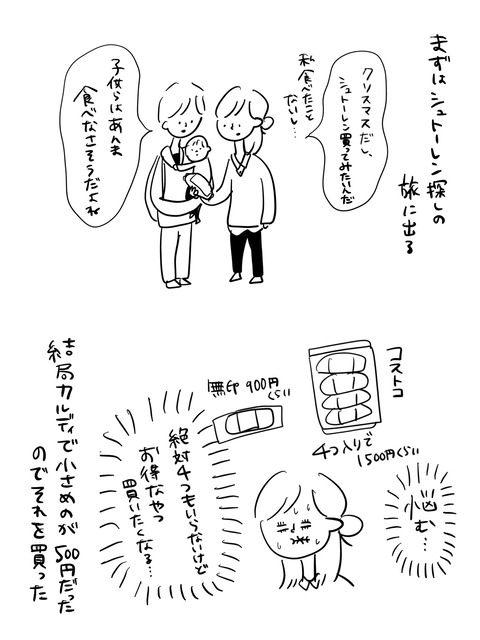 まずはシュトーレン探しの
旅に出る
クリスマスだし、
シュトーレン買ってみたいんだ
私食べたこと
ないし…
子供らはあんま
食べなさそうだよね
コストコ
4つ入りで
1500円くらい
無印 900円
くらい
悩
む…
絶対4つもいらないけど
お得なやつ
買いたくなる…
結局カルディで小さめのが500円だった
のでそれを買った